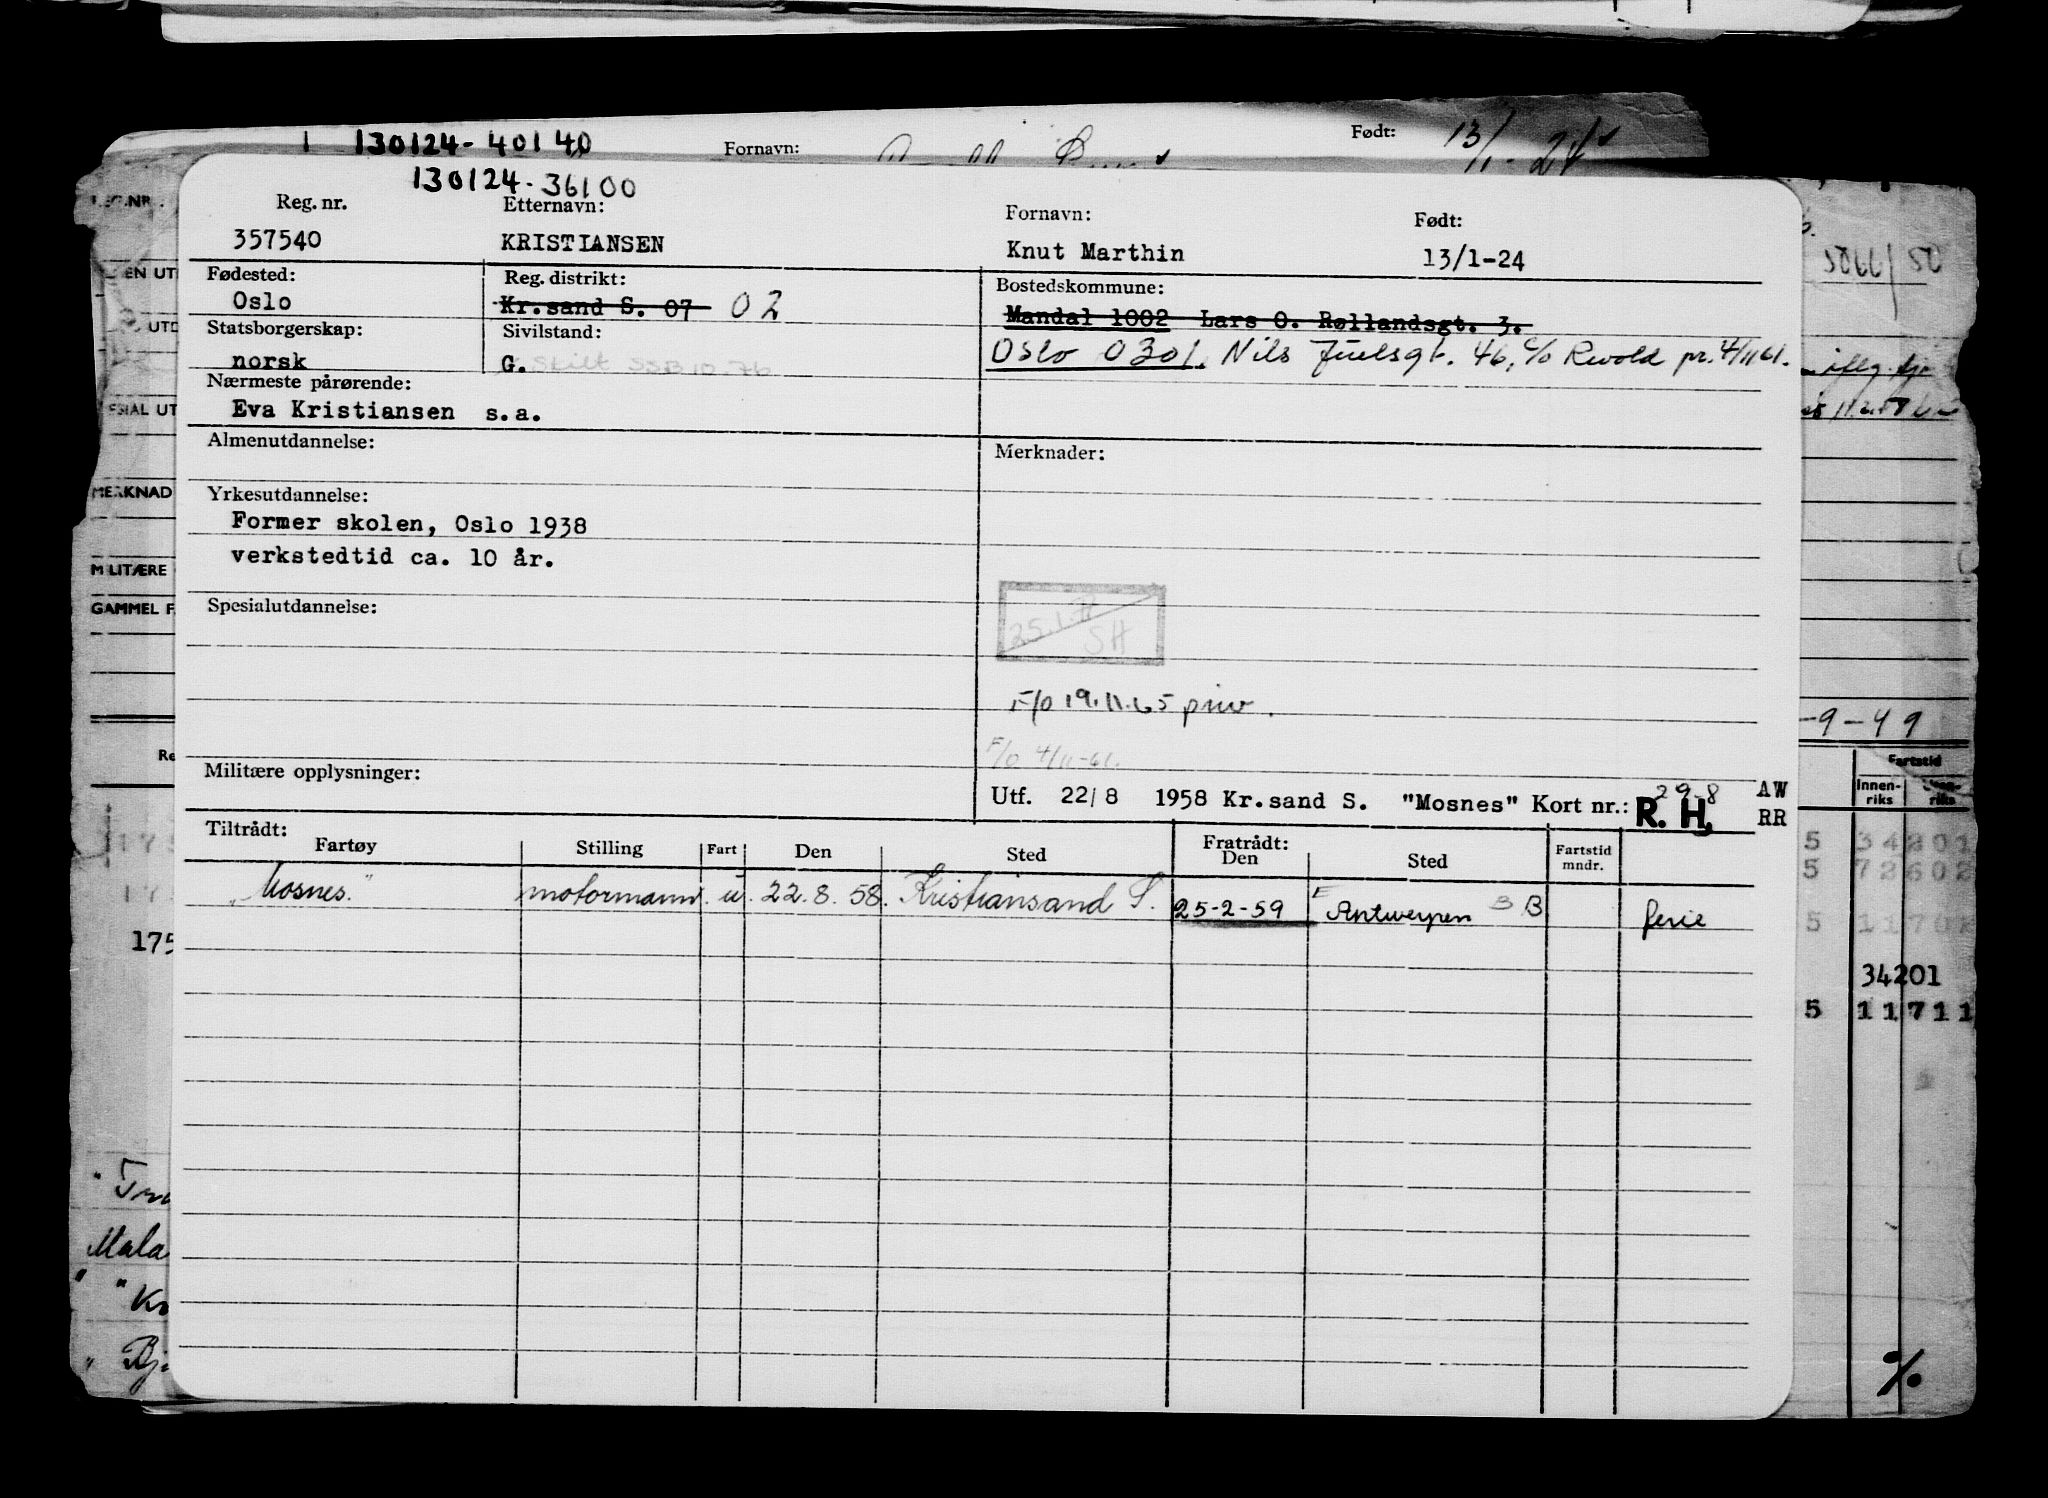 130124-40140
Fornavn:
Født: 13/1-24
130124-36100
Reg. nr.
Etternavn:
Fornavn:
Født:
357540
KRISTIANSEN
Knut Marthin
13/1-24
Fødested:
Reg. distrikt:
Bostedskommune:
Oslo
Kr.sand S. 07 02
Mandal 1002 Lars O. Røllandsgt. 3.
Statsborgerskap:
Sivilstand:
norsk
G. Skilt SSB 10.76
Oslo 0301. Nils Juelsgt. 46, c/o Rwold pr. 4/11 61.
Nærmeste pårørende:
Eva Kristiansen s.a.
Almenutdannelse:
Merknader:
Yrkesutdannelse:
Former skolen, Oslo 1938
verkstedtid ca. 10 år.
Spesialutdannelse:
SH
F/O 19.11.65 priv.
F/O 4/11-61.
Militære opplysninger:
Utf. 22/8 1958 Kr.sand S. "Mosnes" Kort nr.: R. H. 29-8 AW
RR
Tiltrådt:
Fratrådt:
Fartøy
Stilling
Fart
Den
Sted
Den
Sted
Fartstid
mndr.
"Mosnes"
motormann
u
22.8.58.
Kristiansand S.
25-2-59
E Antwerpen B B
ferie
MERKNAD
MILITÆRE
GAMMEL F
-9-49
Fartstid
Innen-
riks
5 34201
5 72602
175
34201
5 11711
Mala
%